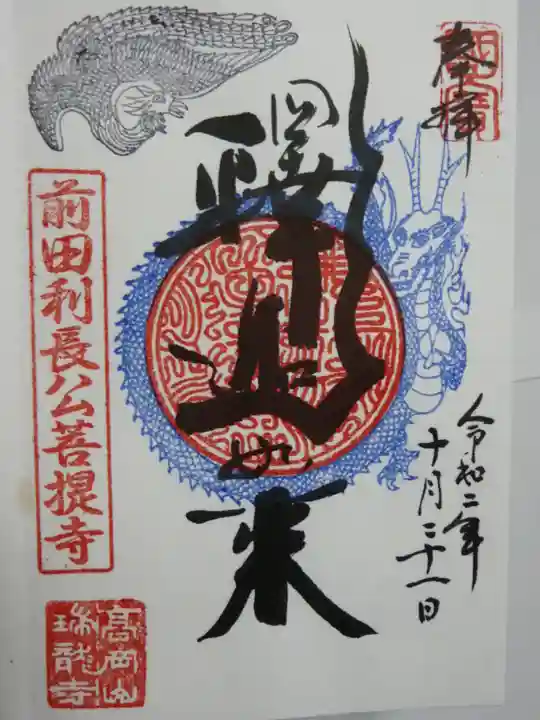 奉拝
釋迦如来
令和二年
十月二十一日
前田利長公菩提寺
高岡山
瑞龍寺